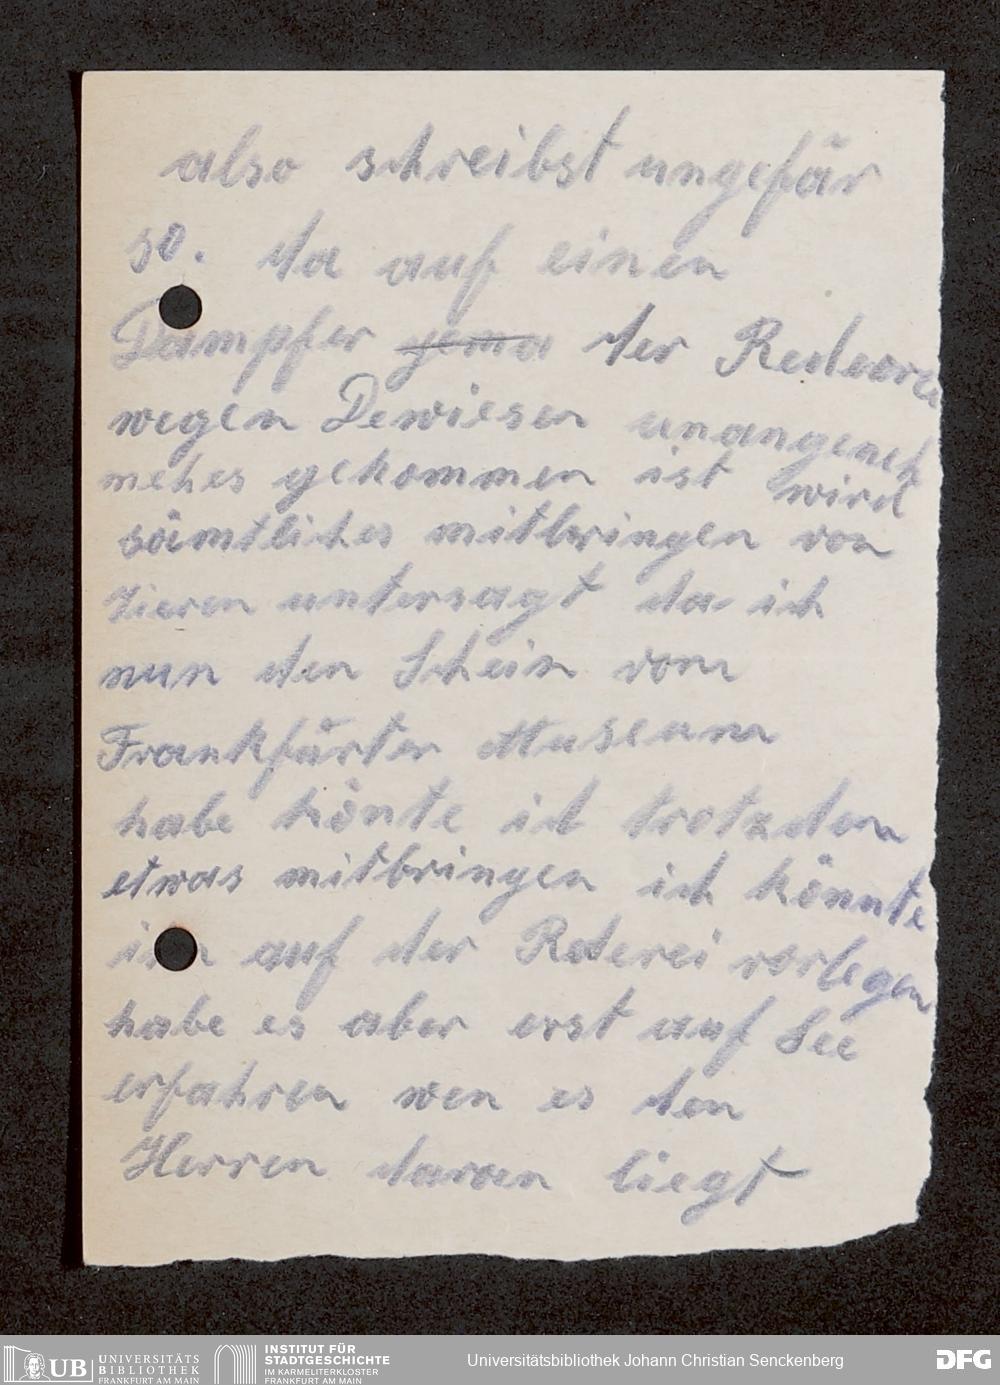 also schreibst ungefär
so. da auf einen
Dampfer gema der
wegen Dewiesen unangeneh
mehes gekommen ist wird
sämtliches mitbringen von
Tieren untersagt da ich
nun den Schein vom
Frankfürter Museum
habe könte ich trotzdem
etwas mitbringen ich könnte
auf der Rederei vorlegen
habe es aber erst auf See
erfahren wen es den
Herren daran liegt
UB UNIVERSITÄTS
BIBLIOTHEK
FRANKFURT AM MAIN
INSTITUT FÜR
STADTGESCHICHTE
IM KARMELITERKLOSTER
FRANKFURT AM MAIN
Universitätsbibliothek Johann Christian Senckenberg
DFG